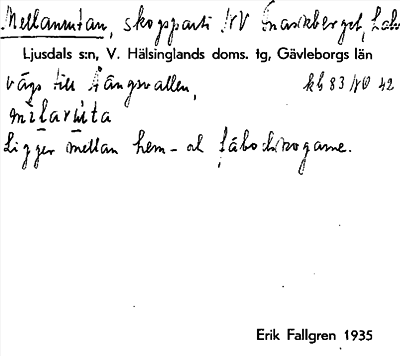 Mellanrutan, skogsparti NV Snaskberget, halv
Ljusdals s:n, V. Hälsinglands doms. tg, Gävleborgs län
vägs till Ängsvallen, kb 83 NO 42
milarúta
Ligger mellan hem- och fäbodskogarne.
Erik Fallgren 1935